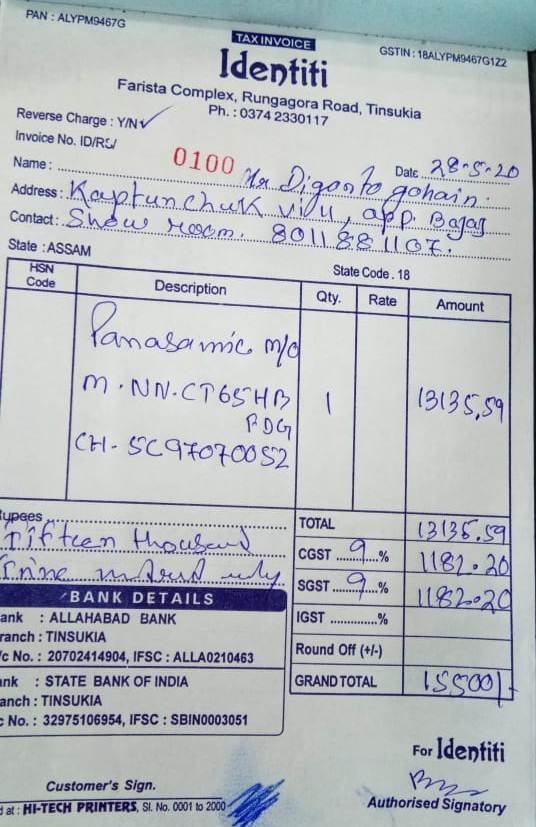 PAN : ALYPM9467G
TAX INVOICE
GSTIN : 18ALYPM9467G1Z2
Identiti
Farista Complex, Rungagora Road, Tinsukia
Ph. : 0374 2330117
Reverse Charge : Y/N ✓
Invoice No. ID/RS/
0100
Date 28-5-20
Name : Mr Diganto gohain.
Address : Kaptunchuk vill, opp. Bajaj
Contact : Show room. 8011881107.
State : ASSAM
State Code . 18
HSN Code Description Qty. Rate Amount
Panasonic m/o
M. NN.CT65HB 1 13135.59
FDG
CH- 5C97070052
Rupees
TOTAL 13135.59
Fifteen thousand
CGST 9 % 1182.20
only
SGST 9 % 1182.20
BANK DETAILS
ank : ALLAHABAD BANK
IGST ............%
ranch : TINSUKIA
/c No. : 20702414904, IFSC : ALLA0210463
Round Off (+/-)
ank : STATE BANK OF INDIA
GRAND TOTAL 15500/-
anch : TINSUKIA
c No. : 32975106954, IFSC : SBIN0003051
For Identiti
Customer's Sign.
d at : HI-TECH PRINTERS, Sl. No. 0001 to 2000
Authorised Signatory